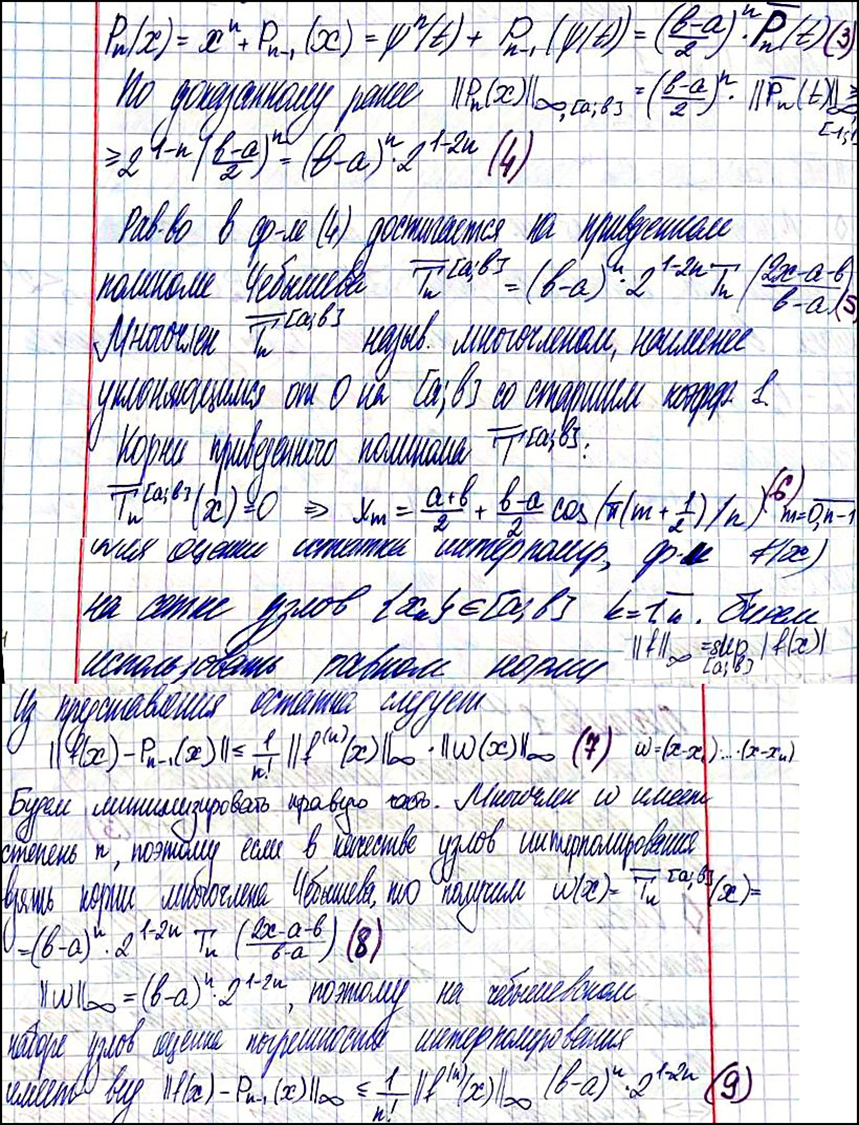 Pn(x) = xⁿ + Pn-1(x) = ψⁿ(t) + Pn-1(ψ(t)) = ((b-a)/2)ⁿ · P̅n(t) (3)
По доказанному ранее ||Pn(x)||∞,[a;b] = ((b-a)/2)ⁿ · ||P̅n(t)||∞[-1;1] ≥
≥ 2^(1-n) ((b-a)/2)ⁿ = (b-a)ⁿ · 2^(1-2n) (4)
Рав-во в ф-ле (4) достигается на приведенном
полиноме Чебышева T̅n^[a;b] = (b-a)ⁿ · 2^(1-2n) Tn ((2x-a-b)/(b-a)) (5)
Многочлен T̅n^[a;b] назыв. многочленом, наименее
уклоняющимся от 0 на [a;b] со старшим коэфф. 1.
Корни приведенного полинома T̅^[a;b]:
T̅n^[a;b](x) = 0 ⇒ xm = (a+b)/2 + (b-a)/2 cos(π(m + 1/2)/n) (6) m=0,n-1
для оценки остатка интерполир. ф-и f(x)
на сетке узлов {xn} ∈ [a;b] k=1,n. Будем
использовать равном. норму ||f||∞ = sup[a;b] |f(x)|
Из представления остатка следует
||f(x) - Pn-1(x)|| ≤ 1/n! ||f^(n)(x)||∞ · ||ω(x)||∞ (7) ω=(x-x1)·...·(x-xn)
Будем минимизировать правую часть. Многочлен ω имеет
степень n, поэтому если в качестве узлов интерполирования
взять корни многочлена Чебышева, то получим ω(x) = T̅n^[a;b](x) =
= (b-a)ⁿ · 2^(1-2n) Tn ((2x-a-b)/(b-a)) (8)
||ω||∞ = (b-a)ⁿ · 2^(1-2n), поэтому на чебышевском
наборе узлов оценка погрешности интерполирования
имеет вид ||f(x) - Pn-1(x)||∞ ≤ 1/n! ||f^(n)(x)||∞ (b-a)ⁿ · 2^(1-2n) (9)